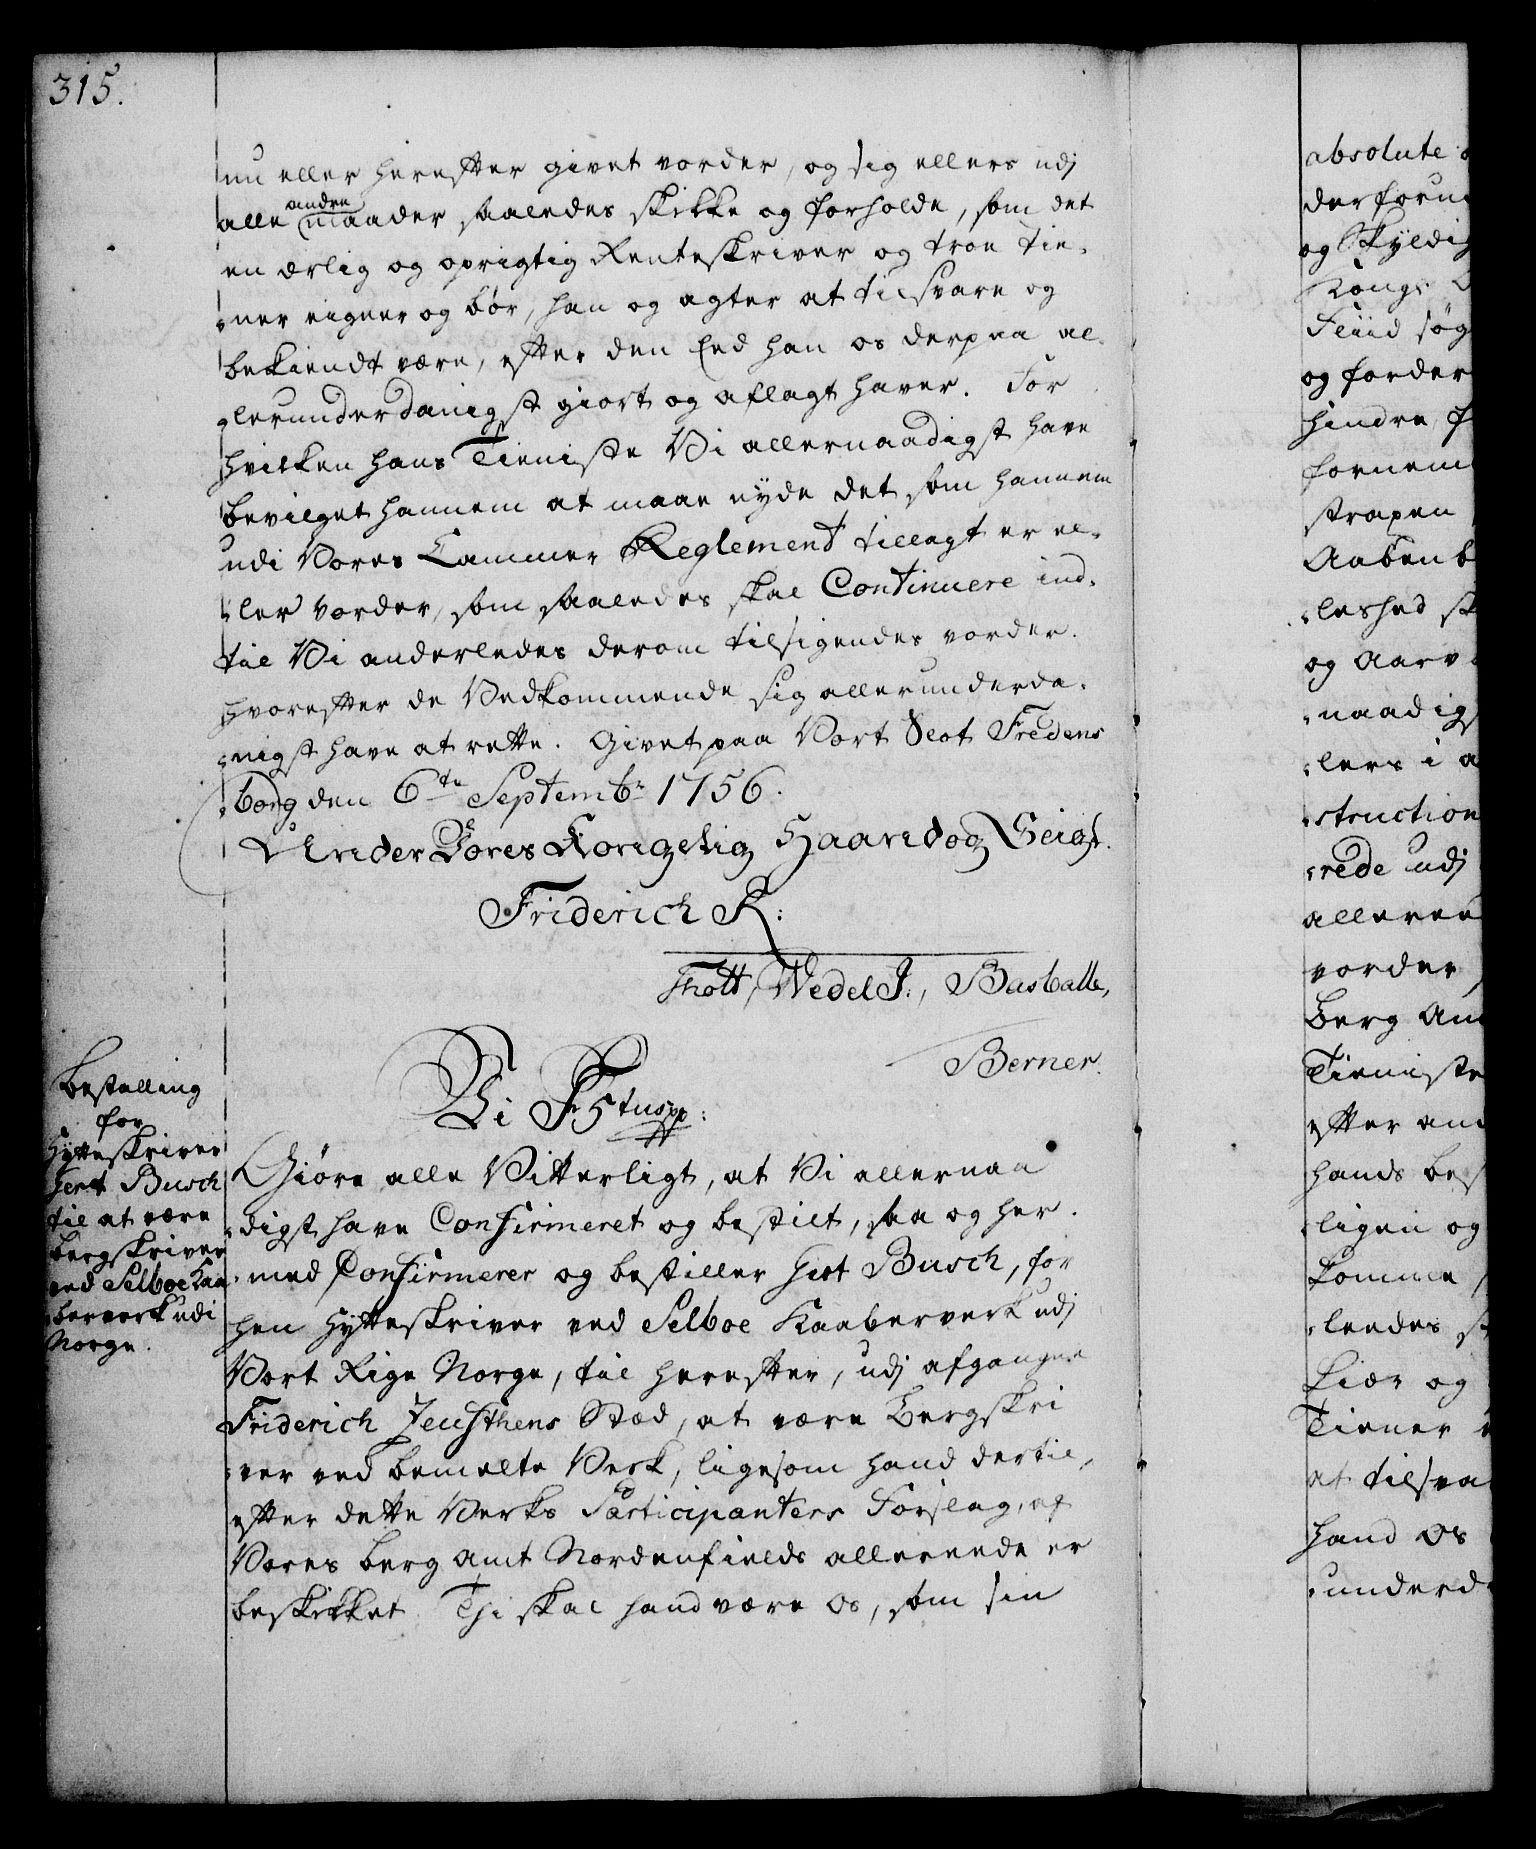 315.
nu eller herefter givet vorder, og sig ellers udj
alle andre maader saaledes skikke og forholde, som det
en ærlig og oprigtig Renteskriver og troe Tie-
-ner eigner og bør, han og agter at tilsvare og
bekiendt være, efter den Eed han os derpaa al-
-lerunderdanigst giort og aflagt haver. For
hvilken hans Tieniste Vi allernaadigst have
bevilget hannem at maae nyde det som hannem
udi Vores Cammer Reglement tillagt er el-
-ler vorder, som saaledes skal Continuere ind-
til Vi anderledes derom tilsigendes vorder.
hvorefter de Vedkommende sig allerunderda-
-nigst have at rette. Givet paa Vort Slot Fredens
-borg den 6te Septembr 1756.
Under Vores Kongelig Haand og Seigl.
Friderich R:
Thott, Wedel J:, Busballe,
Berner.
Bestalling
for
Hytteskriver
Gert Busch
til at være
bergskriver
ved Selboe Kaa
-berverk udi
Norge.
Vi Fr 5tus pp:
Giøre alle Vitterligt, at Vi allernaa
-digst have Confirmeret og bestilt, saa og her-
-med Confirmerer og bestiller Gert Busch, for
hen Hytteskriver ved Selboe Kaaberverk udj
Vort Rige Norge, til herefter, udj afgangne
Friderich Jensthens Stæd, at være Bergskri
-ver ved bemelte Verk, ligesom hand dertil,
efter dette Verks Participanters Forslag, af
Vores berg Amt Nordenfields allereede er
beskikket. Thi skal hand være Os, som sin
absolute
og Skyldig
Kongs
Feiid søg
og forder
hindre, f
fornem
straxen
Aabenb
-leshed st
og Aarv
-naadigs
-lers i a
-struction
-rede udj
alleree
vorder,
Berg Am
Tieniste
efter an
hands bes
-ligen og
komme,
-ledes s
Liær og
Tiener
at tilsva
hand Os
-underd